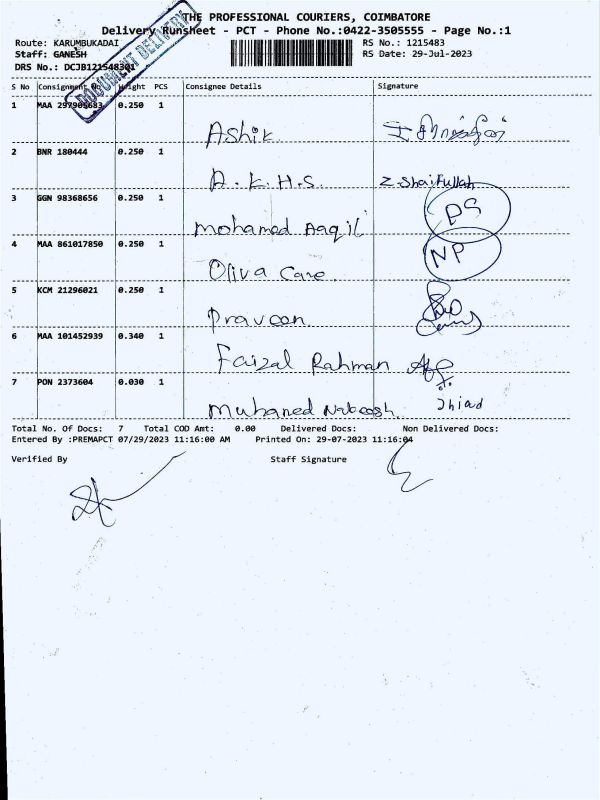 THE PROFESSIONAL COURIERS, COIMBATORE
Delivery Runsheet - PCT - Phone No.:0422-3505555 - Page No.:1
Route: KARUMBUKADAI
RS No.: 1215483
Staff: GANESH
RS Date: 29-Jul-2023
DRS No.: DCJB121548301
DOCUMENT DELIVERY
S No Consignment No Weight PCS Consignee Details Signature
1 MAA 297905683 0.250 1
Ashik
2 BNR 180444 0.250 1
A.K.H.S. Z.Shaifullah
3 GGN 98368656 0.250 1
Mohamed Aaqil DS
4 MAA 861017850 0.250 1
Oliva Care NP
5 KCM 21296021 0.250 1
Praveen
6 MAA 101452939 0.340 1
Faizal Rahman
7 PON 2373604 0.030 1
Muhamed Nabeesh. Jhiad
Total No. Of Docs: 7 Total COD Amt: 0.00 Delivered Docs: Non Delivered Docs:
Entered By :PREMAPCT 07/29/2023 11:16:00 AM Printed On: 29-07-2023 11:16:04
Verified By Staff Signature